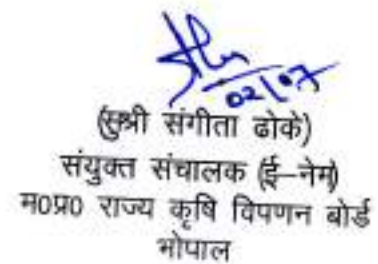 02/07
(सुश्री संगीता ढोके)
संयुक्त संचालक (ई–नेम)
म0प्र0 राज्य कृषि विपणन बोर्ड
भोपाल